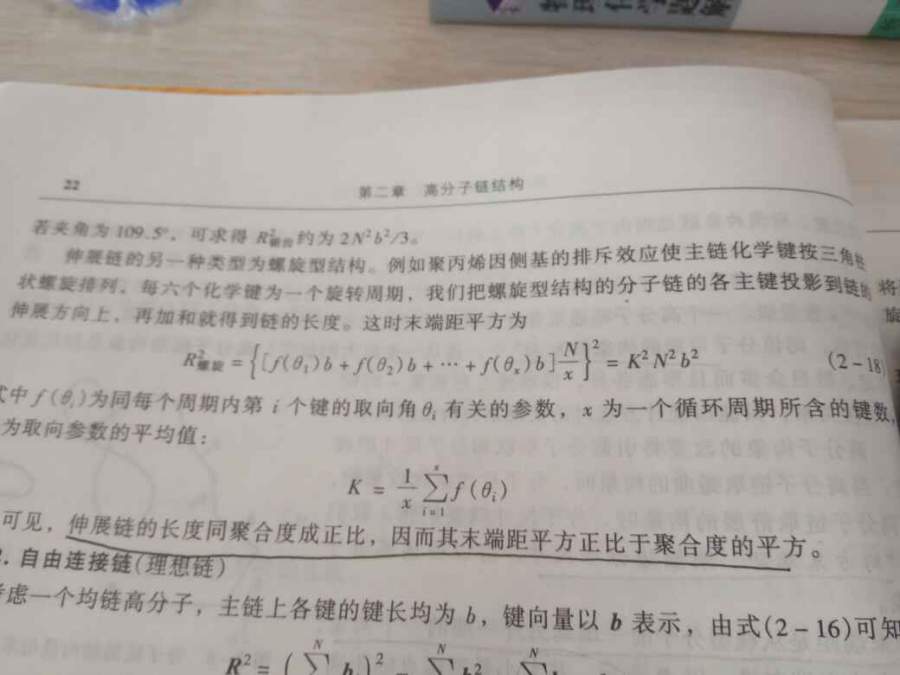 物理化学 题解
22
第二章 高分子链结构
若夹角为 109.5°，可求得 R²锯齿约为 2N²b²/3。
伸展链的另一种类型为螺旋型结构。例如聚丙烯因侧基的排斥效应使主链化学键按三角柱
状螺旋排列，每六个化学键为一个旋转周期，我们把螺旋型结构的分子链的各主键投影到链的
伸展方向上，再加和就得到链的长度。这时末端距平方为
R²螺旋 = {[f(θ₁)b + f(θ₂)b + ⋯ + f(θₓ)b] N/x}² = K²N²b² (2-18)
式中 f(θᵢ)为同每个周期内第 i 个键的取向角 θᵢ 有关的参数，x 为一个循环周期所含的键数，
为取向参数的平均值：
K = 1/x ∑ᵢ₌₁ˣ f(θᵢ)
可见，伸展链的长度同聚合度成正比，因而其末端距平方正比于聚合度的平方。
. 自由连接链(理想链)
考虑一个均链高分子，主链上各键的键长均为 b，键向量以 b 表示，由式(2-16)可知
将
旋